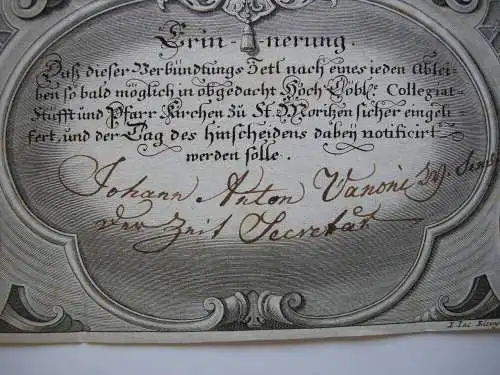 Erin-nerung.
Daß dieser Verbündtungs Zetl nach eines ieden Ablei-
ben so bald möglich in obgedacht Hoch Löbl: Collegiat-
Stüfft und Pfarr Kirchen zu St. Moritzen sicher eingeli-
fert, und der Tag des hinscheidens dabeÿ notificirt
werden solle.
Johann Anton Vanoni
der Zeit Secretar
I. Iac.